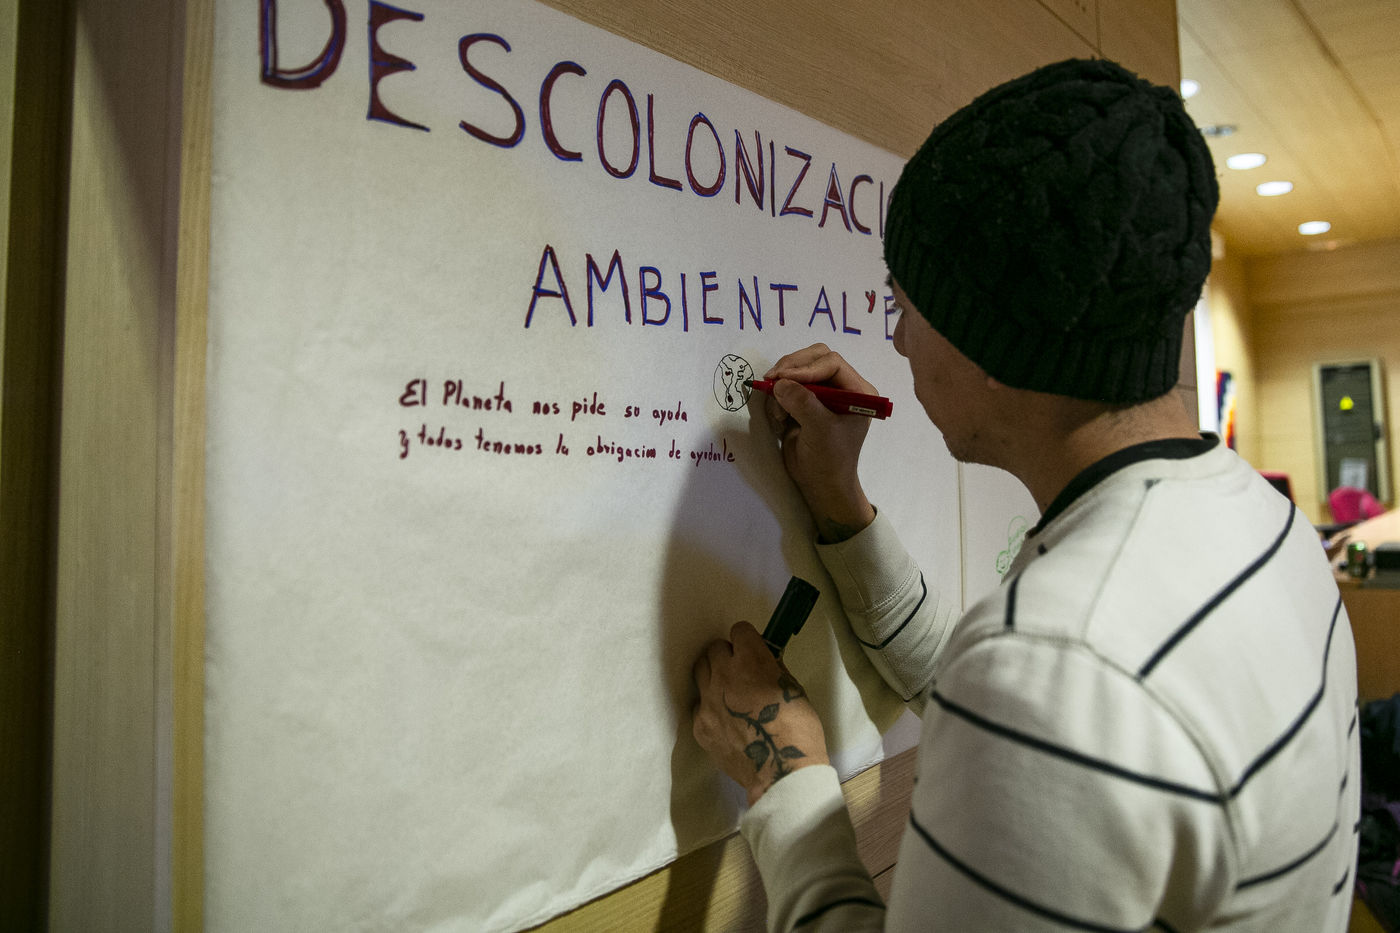 DESCOLONIZACI
AMBIENTAL Y E
El Planeta nos pide su ayuda
y todos tenemos la obrigacion de ayudarle